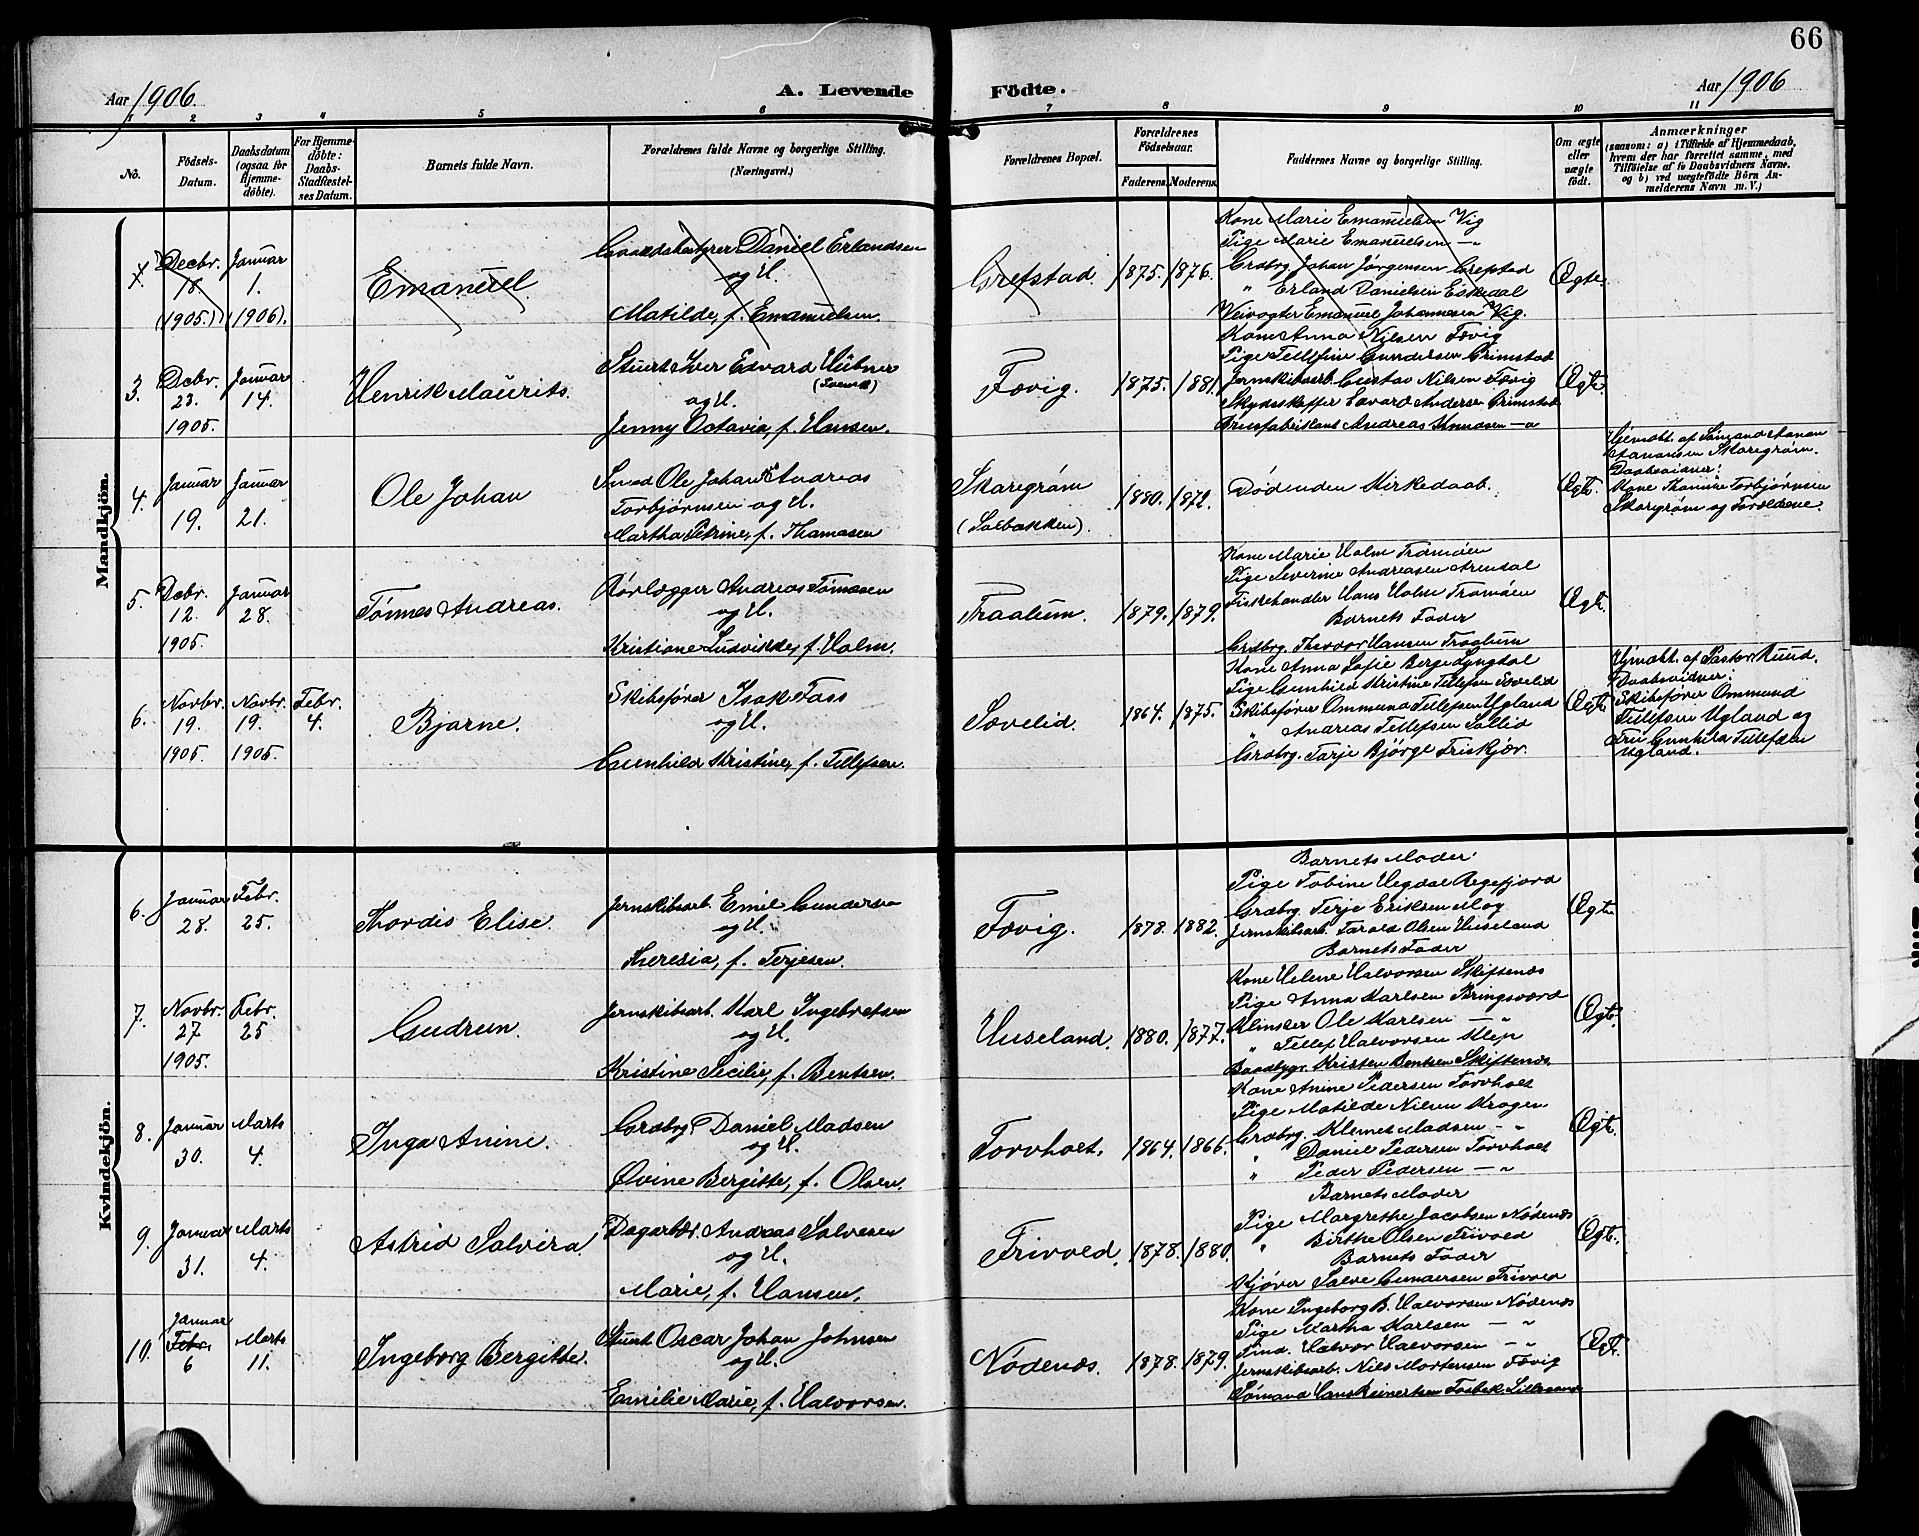 66
Aar 1906.
A. Levende
Födte.
Aar 1906
1 2 3 4 5 6 7 8 9 10 11
No.
Födsels-Datum.
Daabsdatum (ogsaa for Hjemmedöbte).
For Hjemmedöbte: Daabs-Stadfæstelses Datum.
Barnets fulde Navn.
Forældrenes fulde Navne og borgerlige Stilling. (Næringsvei.)
Forældrenes Bopæl.
Forældrenes Födselsaar.
Faderens. Moderens.
Faddernes Navne og borgerlige Stilling.
Om ægte eller uægte födt.
Anmærkninger
(saasom: a) i Tilfælde af Hjemmedaab, hvem der har forrettet samme, med Tilföielse af to Daabsvidners Navne. og b) ved uægtefödte Börn Anmelderens Navn m. V.)
Mandkjön.
Decbr. 18. (1905.)
Januar 1. (1906).
Emanuel.
Gaardsbestyrer Daniel Erlandsen
og H.
Matilde, f. Emanuelsen.
Grefstad.
1875. 1876.
Kone Marie Emanuelsen Vig
Pige Marie Emanuelsen — "
Grdbrg. Johan Jørgensen Grefstad
" Erland Danielsen Eskedal
Veivogter Emanuel Johannesen Vig.
Ægte.
3. Decbr. 23. 1905.
Januar 14.
Henrik Maurits.
Stuert Iver Edvard Hübner
(Svensk)
og H.
Jenny Octavia, f. Hansen.
Fævig.
1875. 1881.
Kone Anna Nilsen Fævig
Pige Tellefine Gundersen Grimstad
Jernskibsarb. Gustav Nilsen Fævig
Skydsskaffer Edvard Andersen Grimstad
Brusfabrikant Andreas Knudsen — "
Ægte.
4. Januar 19.
Januar 21.
Ole Johan
Smed Ole Johan Andreas
Torbjørnsen og H.
Martha Petrine, f. Thomasen
Skaregrøm
(Solbakken).
1880. 1872.
Død uden Kirkedaab.
Ægte.
Hjemdbt. af Sømand
Skaregrøm.
Daabsvidner:
Kone Thomine Torbjørnsen
Skaregrøm og Forældrene.
5. Decbr. 12. 1905.
Januar 28.
Tønnes Andreas.
Rørlægger Andreas Tønnesen
og H.
Kristiane Ludvikke, f. Holm.
Traalum.
1879. 1879.
Kone Marie Holm Tromøen
Pige Severine Andreasen Arendal
Fiskehandler Hans Holm Tromøen
Barnets Fader
Grdbrg. Thorvor Hansen Traalum
Ægte.
6. Novbr. 19. 1905
Novbr. 19. 1905
Febr. 4.
Bjarne.
Skibsfører Isak Foss
og H.
Gunhild Kristine, f. Tellefsen.
Søvelid.
1864. 1875.
Kone Anna Sofie Berge Lyngdal
Pige Gunhild Kristine Tellefsen Søvelid
Skibsfører Ommund Tellefsen Ugland
" Andreas Tellefsen Sollid
Grdbrg. Tarje Bjørge Friskjær.
Ægte.
Hjmdbt. af Pastor Ruud.
Daabsvidner:
Skibsfører Ommund
Tellefsen Ugland og
Fru Gunhild Tellefsen
Ugland.
Kvindekjön.
6. Januar 28.
Febr. 25.
Thordis Elise.
Jernskibsarb. Emil Gundersen
og H.
Theresia, f. Terjesen.
Fævig.
1878. 1882.
Barnets Moder
Pige Tobine Hegdal Regefjord
Grdbrg. Terje Eriksen Moy
Jernskibsarb. Tarald Olsen Huseland
Barnets Fader
Ægte.
7. Novbr. 27 1905.
Febr. 25
Gudrun.
Jernskibsarb. Karl Ingebretsen
og H.
Kristine Secilie, f. Bentsen.
Huseland.
1880. 1877.
Kone Helene Halvorsen Skiftenes
Pige Anna Karlsen Bringsværd
Klinker Ole Karlsen — "
" Tellef Halvorsen Klep
Baadbygr. Kristen Bentsen Skiftenes
Ægte.
8. Januar 30.
Marts 4.
Inga Anine.
Grdbrg. Daniel Madsen
og H.
Øvine Bergitte, f. Olsen.
Torvholt.
1864. 1866.
Kone Anine Pedersen Torvholt
Pige Matilde Nilsen Krogen
Grdbrg. Klemet Madsen — "
" Daniel Pedersen Torvholt
" Peder Pedersen — "
Ægte.
9. Januar 31.
Marts 4.
Astrid Salvira.
Dagarbdr. Andreas Salvesen
og H.
Marie, f. Hansen.
Frivold.
1878. 1880.
Barnets Moder
Pige Margrethe Jacobsen Nødenes
" Birthe Olsen Frivold
Barnets Fader
Kjører Salve Gundersen Frivold
Ægte.
10. Januar Febr. 6
Marts 11.
Ingeborg Bergitte.
Stuert Oscar Johan Johnsen
og H.
Emilie Marie, f. Halvorsen.
Nødenes.
1878. 1879.
Kone Ingeborg B. Halvorsen Nødenes
Pige Martha Karlsen — "
Tmd. Halvor Halvorsen — "
Jernskibsarb. Nils Mortensen Fævig
Sømand Hans Reinertsen Fosbæk Lillesand
Ægte.